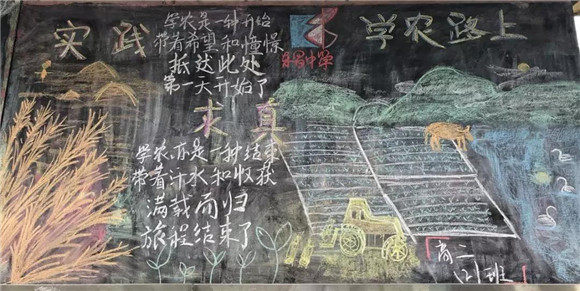 实践
学农是一种开始
带着希望和憧憬
抵达此处
第一天开始了
学农路上
求真
学农亦是一种结束
带着汗水和收获
满载而归
旅程结束了
高二
(2)班